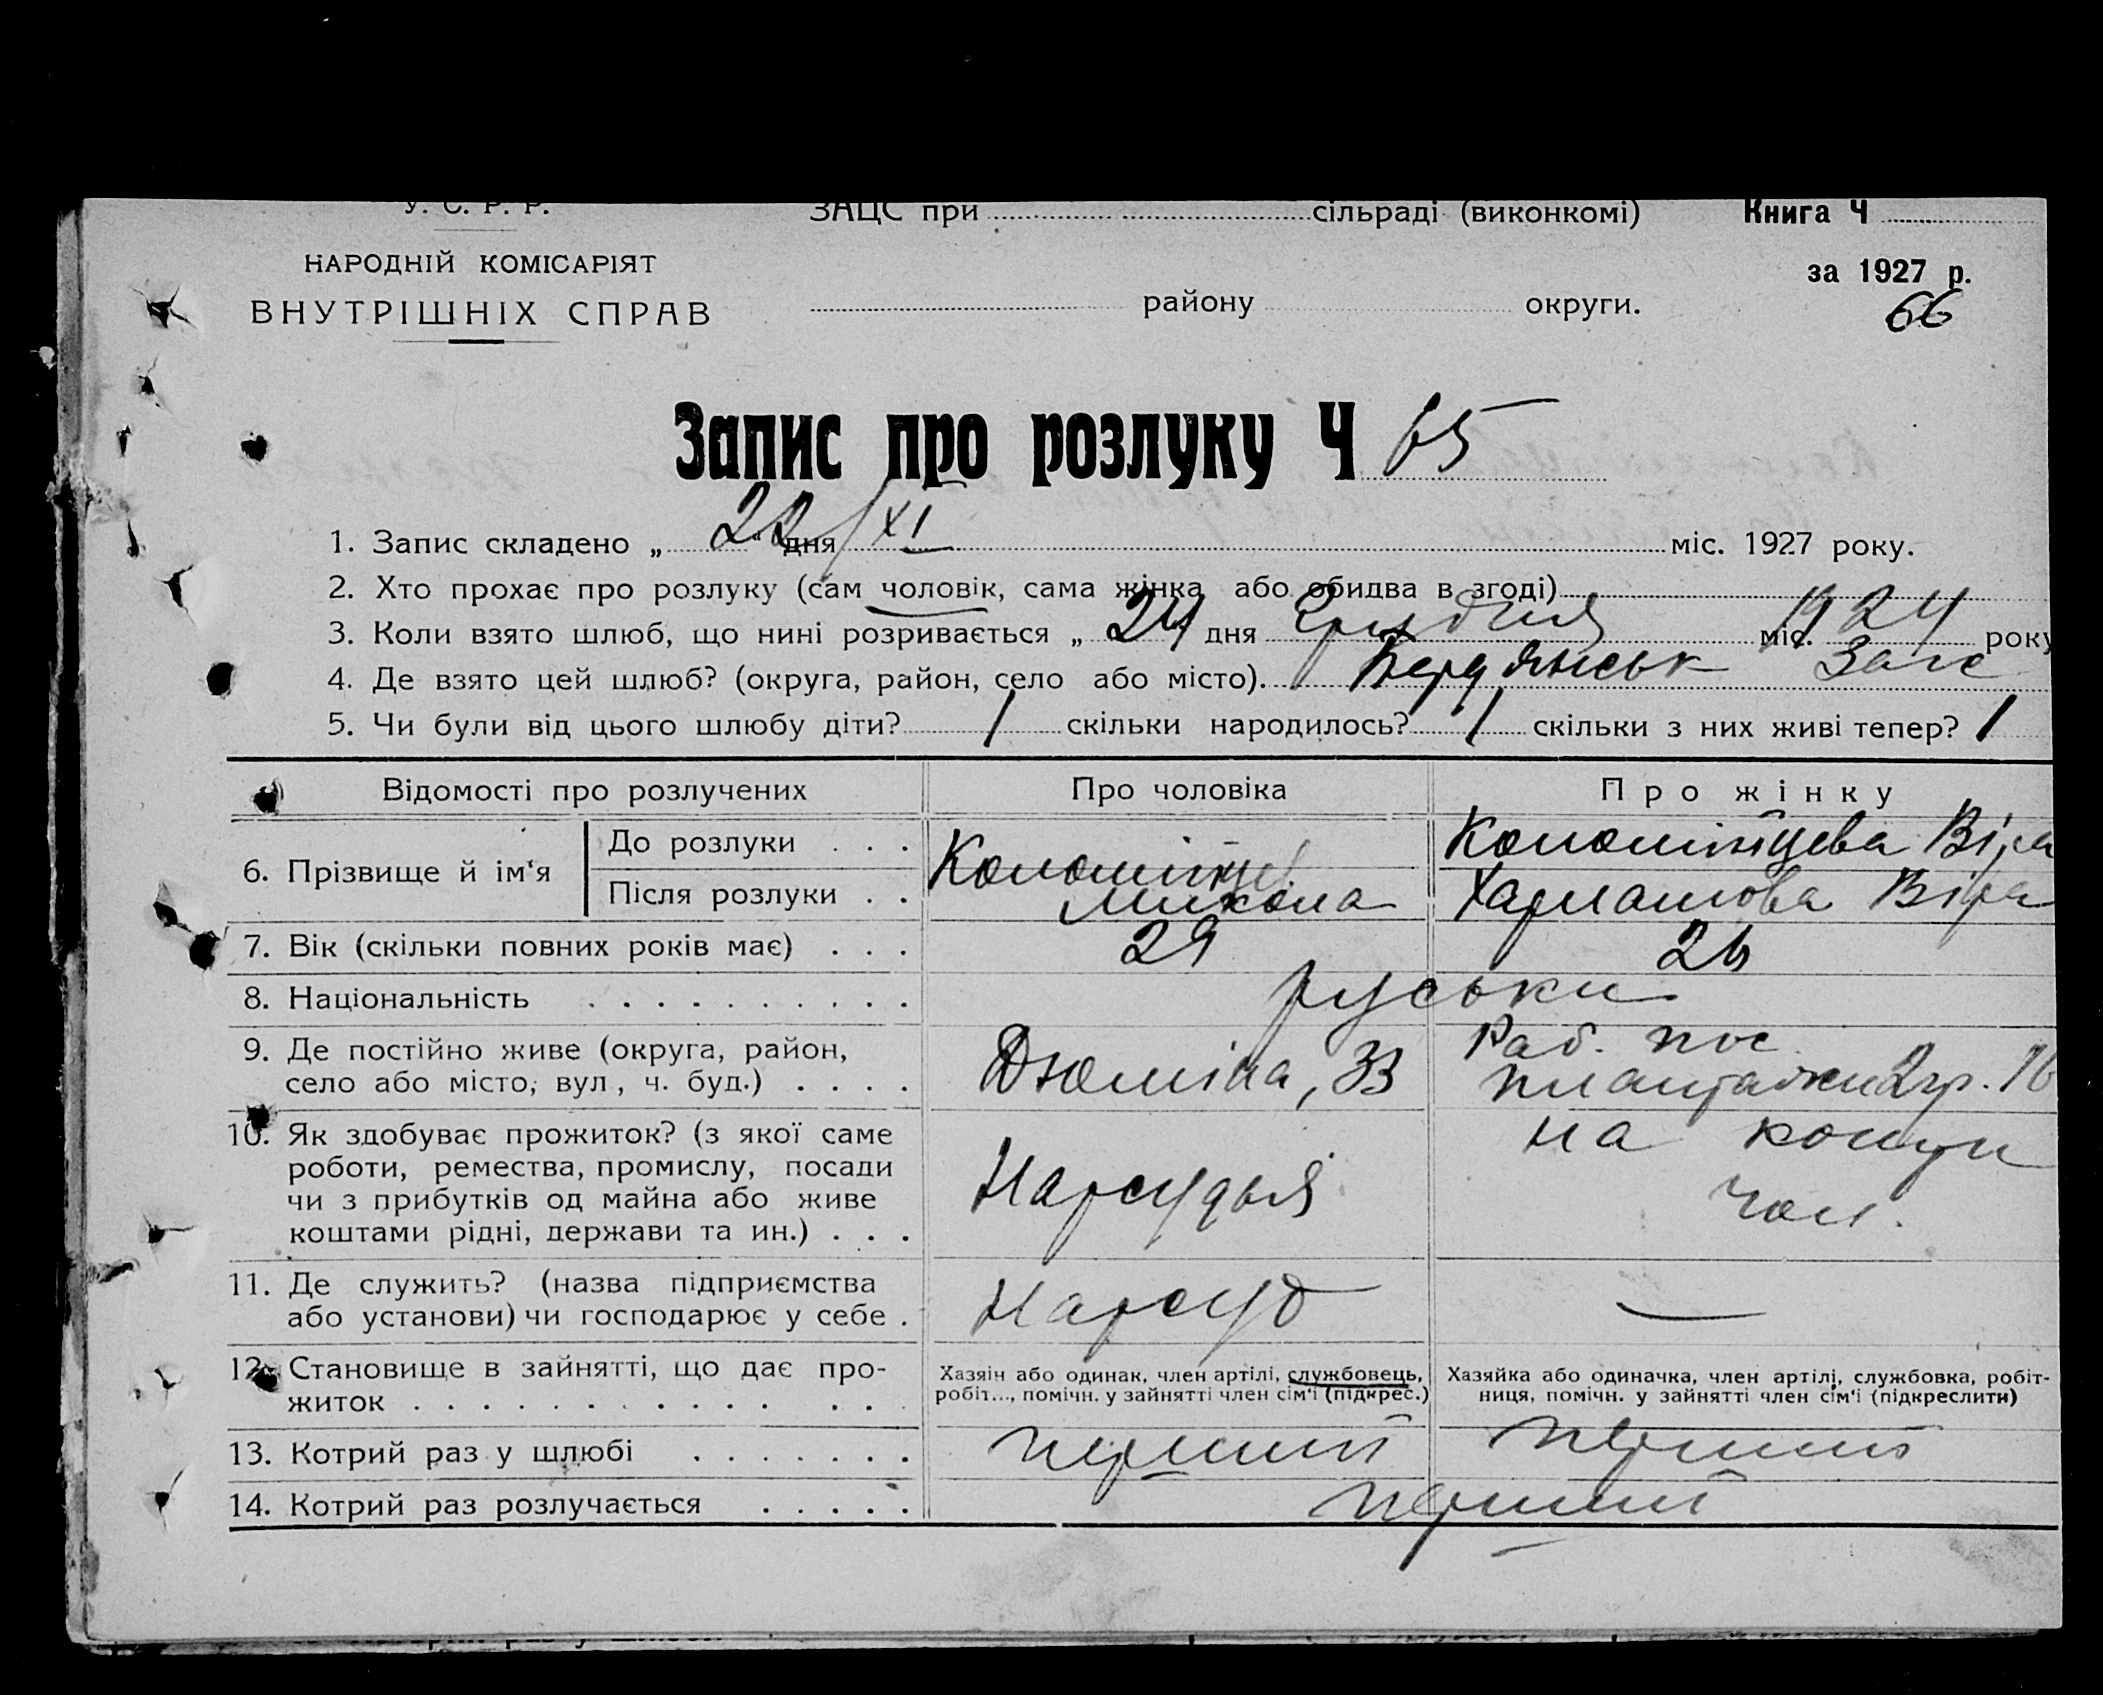 У. С. Р. Р.
НАРОДНІЙ КОМІСАРІЯТ
ВНУТРІШНІХ СПРАВ
ЗАЦС при сільраді (виконкомі)
району округи.
Книга Ч
за 1927 р.
66
Запис про розлуку Ч 65
1. Запис складено „ 22/XI " дня міс. 1927 року.
2. Хто прохає про розлуку (сам чоловік, сама жінка або обидва в згоді)
3. Коли взято шлюб, що нині розривається „ 24 дня Грудня міс. 1924 року
4. Де взято цей шлюб? (округа, район, село або місто). Бердянськ Загс
5. Чи були від цього шлюбу діти? 1 скільки народилось? 1 скільки з них живі тепер? 1
Відомості про розлучених Про чоловіка Про жінку
6. Прізвище й ім'я
До розлуки . . . Коломійцева Віра
Після розлуки . . Харламова Віра
Коломієць
Микола
7. Вік (скільки повних років має) . . . 29 26
8. Національність . . . . . . . . . . руськи
9. Де постійно живе (округа, район,
село або місто, вул., ч. буд.) . . . .
Дюміна, 33
Раб. пос.
2 гр. 16
10. Як здобуває прожиток? (з якої саме
роботи, ремества, промислу, посади
чи з прибутків од майна або живе
коштами рідні, держави та ин.) . . .
Нарсудья
на кошти
чол.
11. Де служить? (назва підприємства
або установи) чи господарює у себе .
Нарсуд
—
12. Становище в зайнятті, що дає про-
житок . . . . . . . . . . . . . .
Хазяін або одинак, член артілі, службовець,
робіт..., помічн. у зайнятті член сім'ї (підкрес.)
Хазяйка або одиначка, член артілі, службовка, робіт-
ниця, помічн. у зайнятті член сім'ї (підкреслити)
13. Котрий раз у шлюбі . . . . . . . перший перший
14. Котрий раз розлучається . . . . . перший